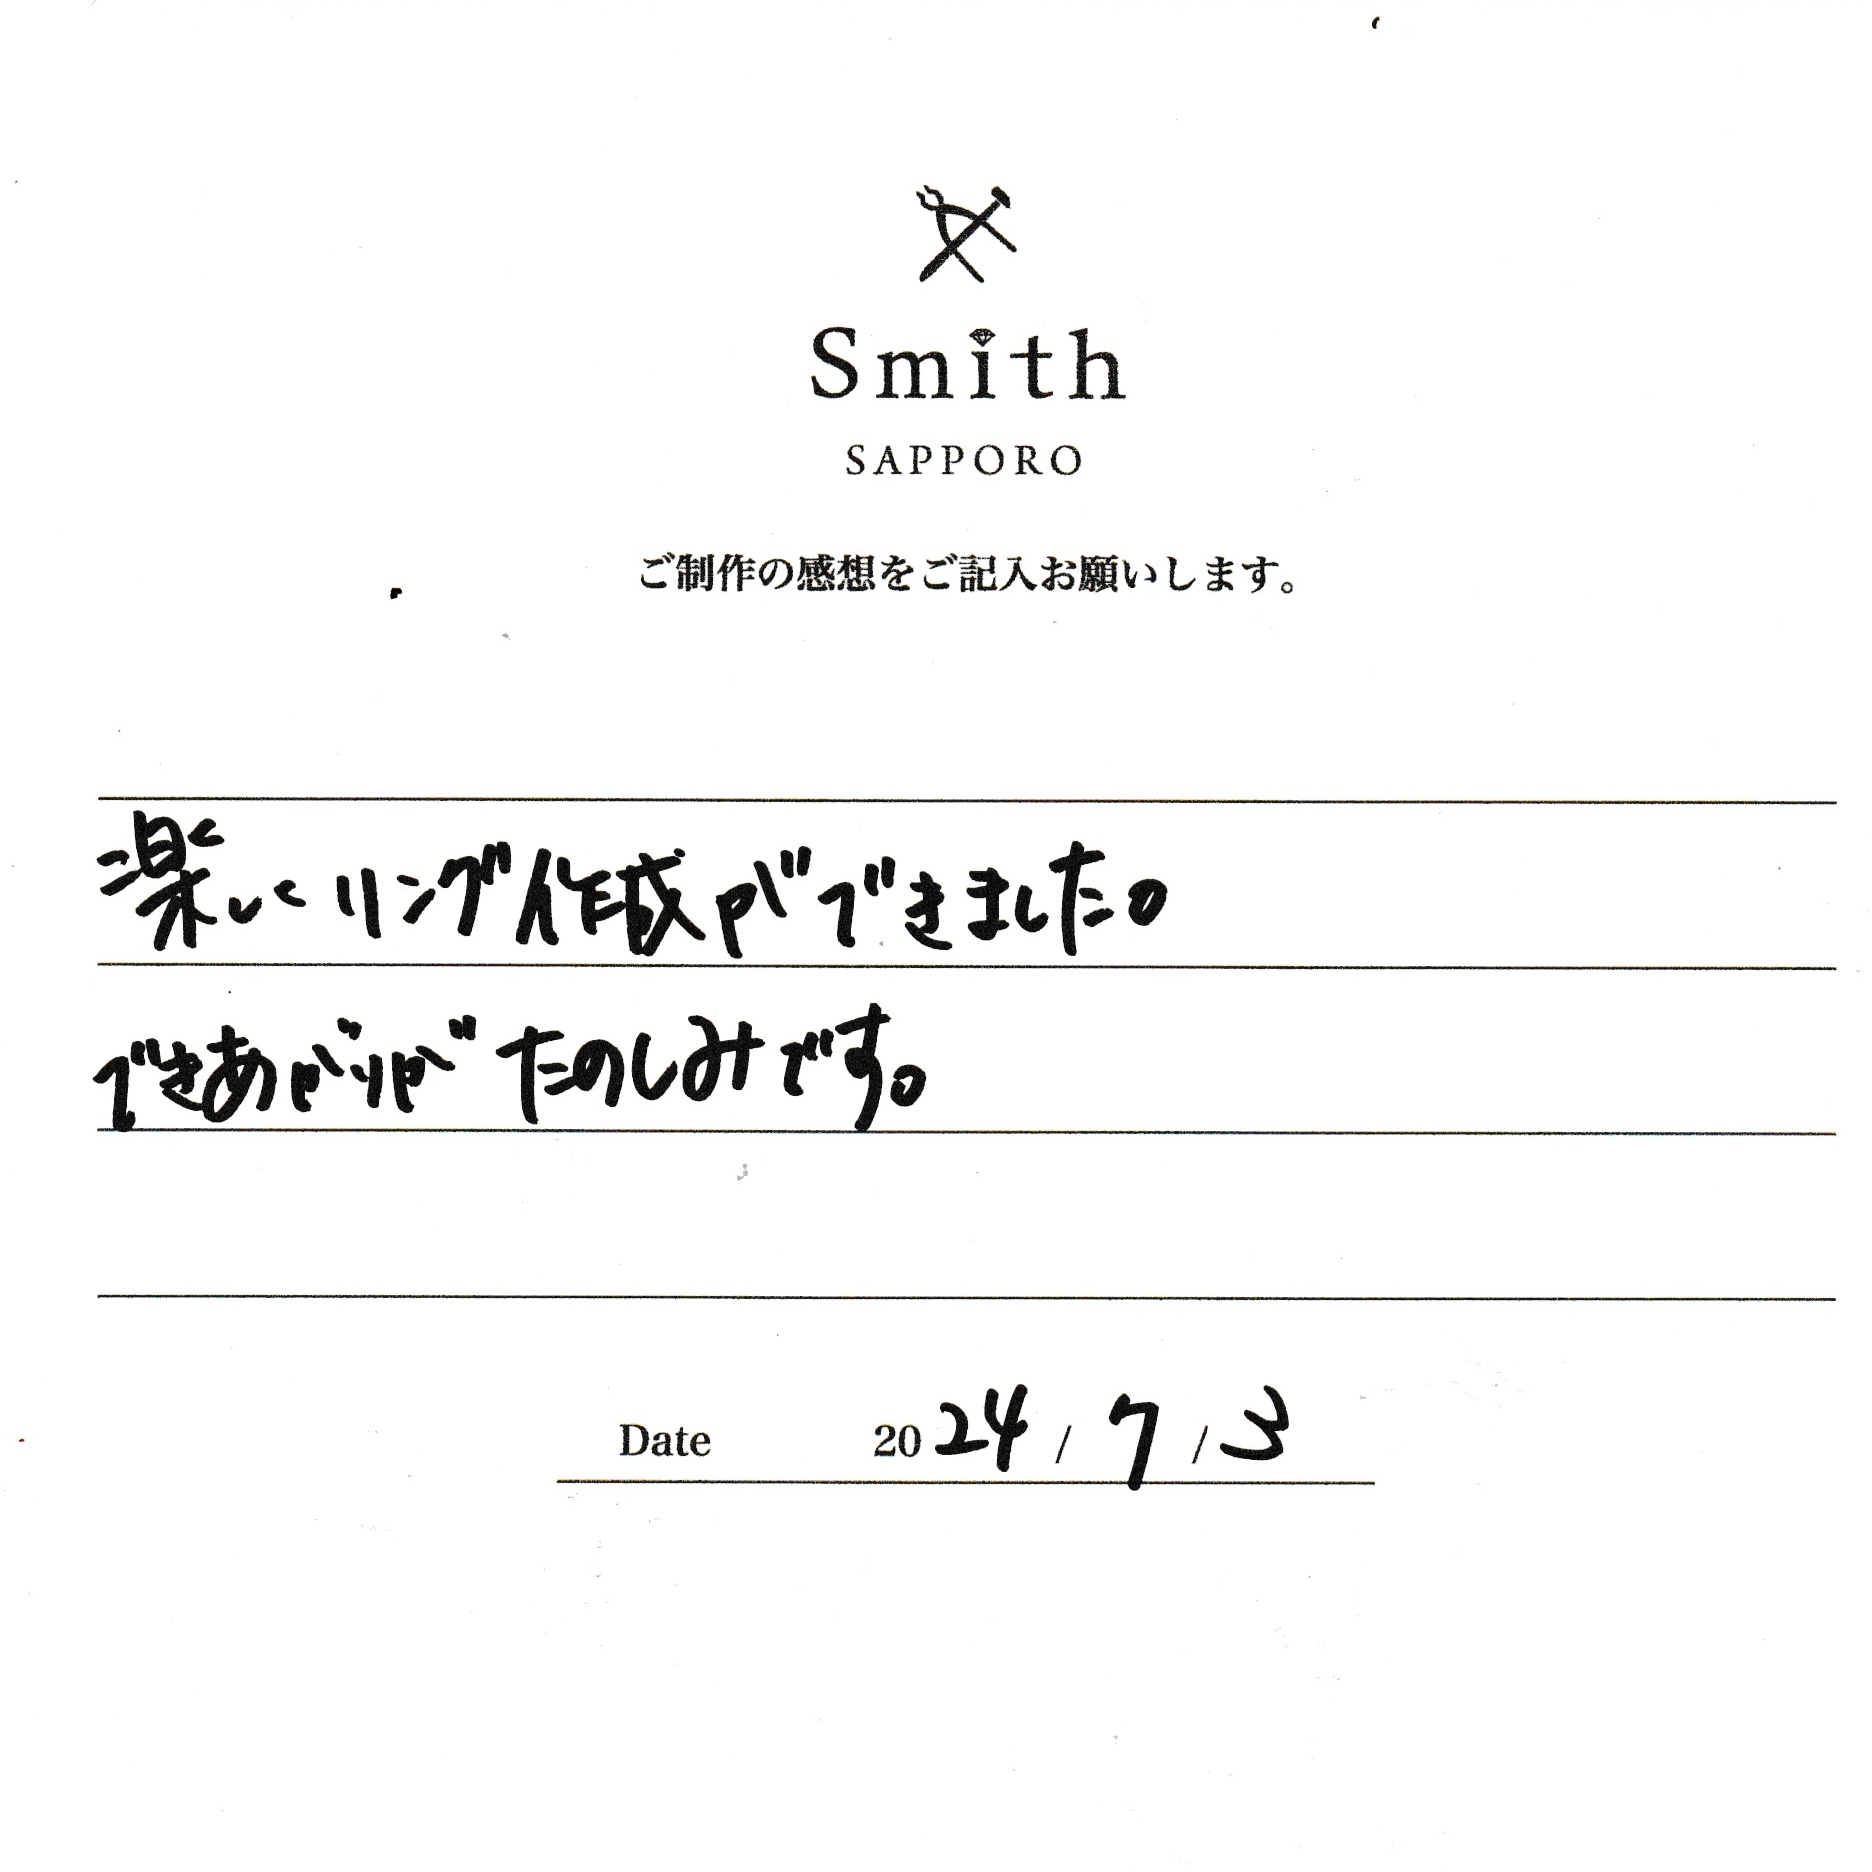 Smith
SAPPORO
ご制作の感想をご記入お願いします。
楽しくリング作成ができました。
できあがりがたのしみです。
Date 2024/7/3